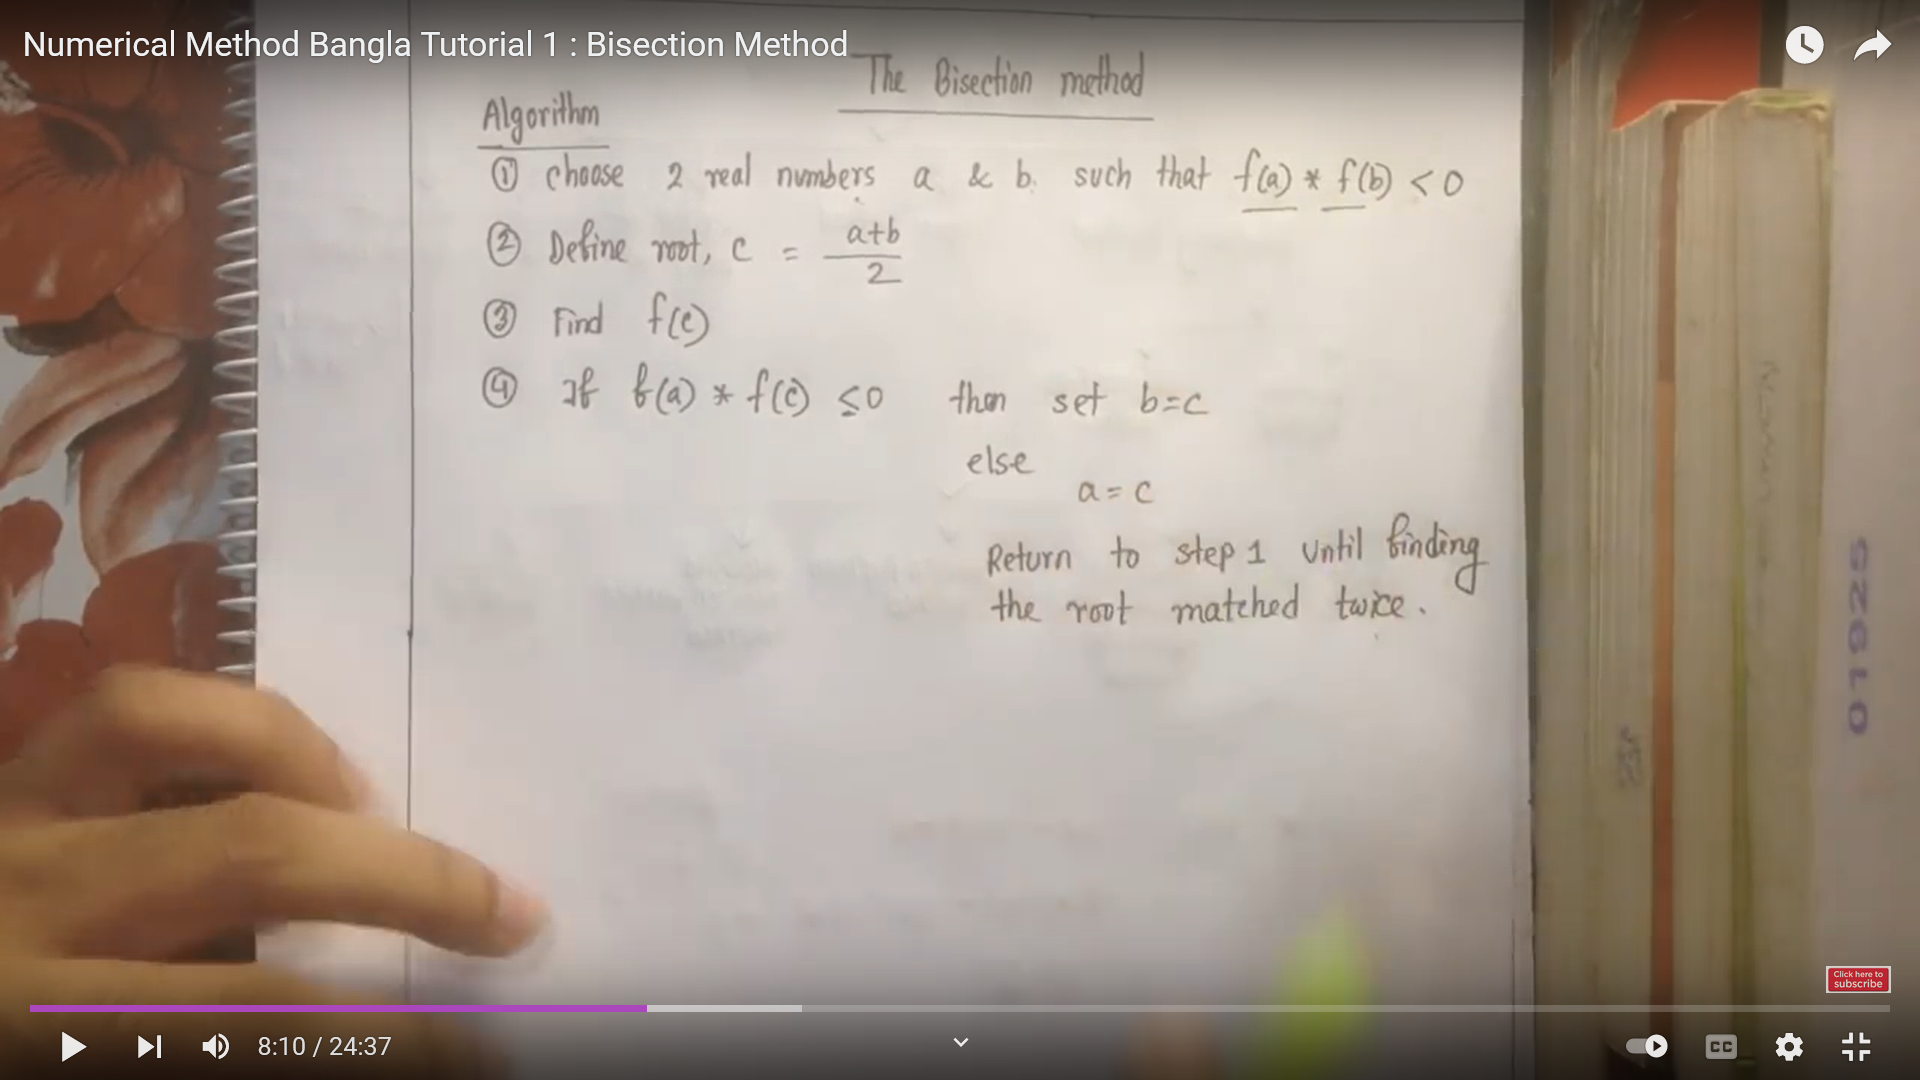 Numerical Method Bangla Tutorial 1 : Bisection Method
The Bisection method
Algorithm
① choose 2 real numbers a & b. such that f(a) * f(b) < 0
② Define root, c = a+b
2
③ Find f(c)
④ If f(a) * f(c) ≤ 0 then set b=c
else
a = c
Return to step 1 until finding
the root matched twice.
01925
Click here to
subscribe
8:10 / 24:37
CC